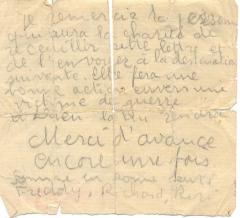 je remercie la personne
qui aura la charité de
recueillir cette lettre et
de l'envoyer à la destination
suivante. Elle fera une
bonne action envers une
victime de guerre
à Dieu la lui rendre
Merci d'avance
encore une fois
bonne santé
Freddy, Richard, Rose